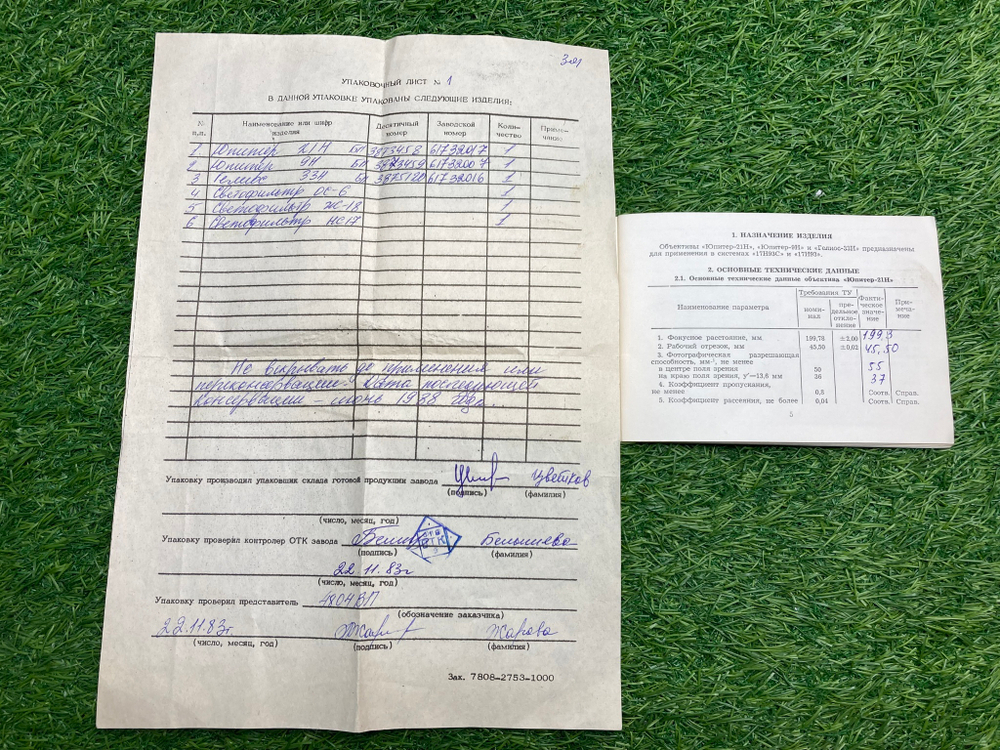 УПАКОВОЧНЫЙ ЛИСТ № 1
В ДАННОЙ УПАКОВКЕ УПАКОВАНЫ СЛЕДУЮЩИЕ ИЗДЕЛИЯ:
№ п.п. Наименование или шифр изделия Десятичный номер Заводской номер Коли-чество Приме-чание
1 Юпитер 21Н Бл 3873458 61732017 1
2 Юпитер 9Н Бл 3873459 61732007 1
3 Гелиос 33Н Бл 3875120 61732016 1
4 Светофильтр ОС-6 1
5 Светофильтр ЖС-18 1
6 Светофильтр НС17 1
Не вскрывать до применения или
переконсервации. Дата последующей
консервации – июнь 1988 года.
Упаковку производил упаковщик склада готовой продукции завода Цветков
(подпись) (фамилия)
(число, месяц, год)
Упаковку проверил контролер ОТК завода
ОТК
(подпись) (фамилия)
22.11.83г
(число, месяц, год)
Упаковку проверил представитель 4804 ВП
(обозначение заказчика)
22.11.83г. Жарова
(число, месяц, год) (подпись) (фамилия)
Зак. 7808-2753-1000
1. НАЗНАЧЕНИЕ ИЗДЕЛИЯ
Объективы «Юпитер-21Н», «Юпитер-9Н» и «Гелиос-33Н» предназначены
для применения в системах
2. ОСНОВНЫЕ ТЕХНИЧЕСКИЕ ДАННЫЕ
2.1. Основные технические данные объектива «Юпитер-21Н»
Наименование параметра Требования ТУ Факти-ческое значе-ние При-меча-ние
номи-нал пре-дельное откло-нения
1. Фокусное расстояние, мм 199,78 ±2,00 199,3
2. Рабочий отрезок, мм 45,50 ±0,02 45,50
3. Фотографическая разрешающая
способность, мм-¹, не менее
в центре поля зрения 50 55
на краю поля зрения, y'=13,6 мм 36 37
4. Коэффициент пропускания,
не менее 0,8 Соотв. Справ.
5. Коэффициент рассеяния, не более 0,04 Соотв. Справ.
5